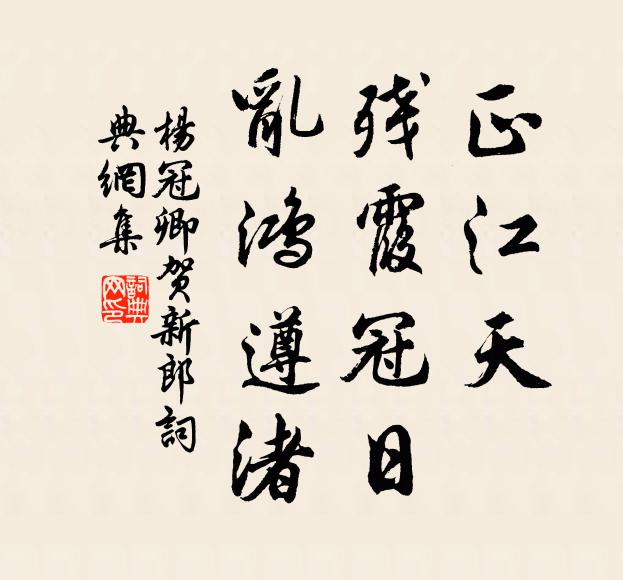 正江天
残霞冠日
亂鴻遵渚
楊冠卿賀新郎詞
典網集
詞典
网印